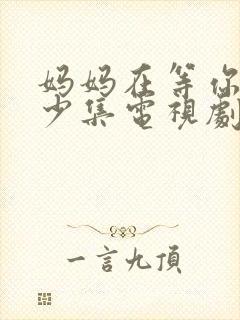 妈妈在等你
少集電視劇
一言九頂